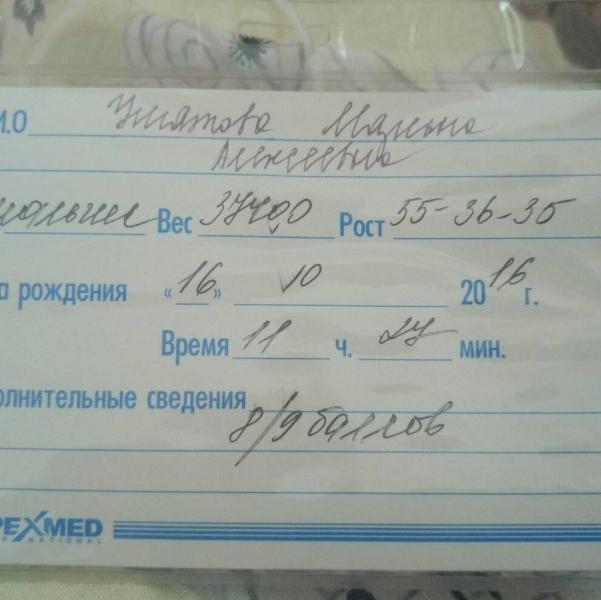 И.О Уматова Марьяна
Алексеевна
мальчик Вес 3740,0 Рост 55-36-35
а рождения «16» 10 2016 г.
Время 11 ч. 27 мин.
олнительные сведения
8/9 баллов
PEXMED
INTERNATIONAL